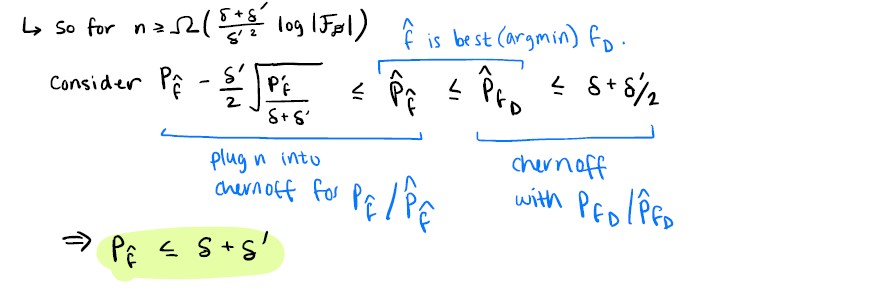 ↳ so for n ≥ Ω( (δ+δ')/δ'² log |F_B| )
f̂ is best (argmin) f_D.
Consider P_f̂ - δ'/2 √( P_f̂ / (δ+δ') ) ≤ P̂_f̂ ≤ P̂_{f_D} ≤ δ + δ'/2
plug n into
chernoff for P_f̂ / P̂_f̂
chernoff
with P_{f_D} / P̂_{f_D}
⇒ P_f̂ ≤ δ + δ'